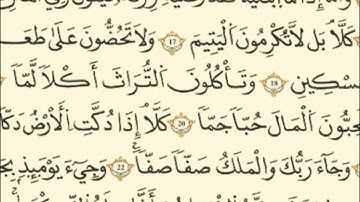 كَلَّا ۖ بَل لَّا تُكْرِمُونَ الْيَتِيمَ 17 وَلَا تَحُضُّونَ عَلَىٰ طَعَـ
ـمِسْكِينِ 18 وَتَأْكُلُونَ التُّرَاثَ أَكْلًا لَّمًّا
ـحِبُّونَ الْمَالَ حُبًّا جَمًّا 20 كَلَّا إِذَا دُكَّتِ الْأَرْضُ دَكًّا
وَجَاءَ رَبُّكَ وَالْمَلَكُ صَفًّا صَفًّا 22 وَجِيءَ يَوْمَئِذٍ بِجَـ